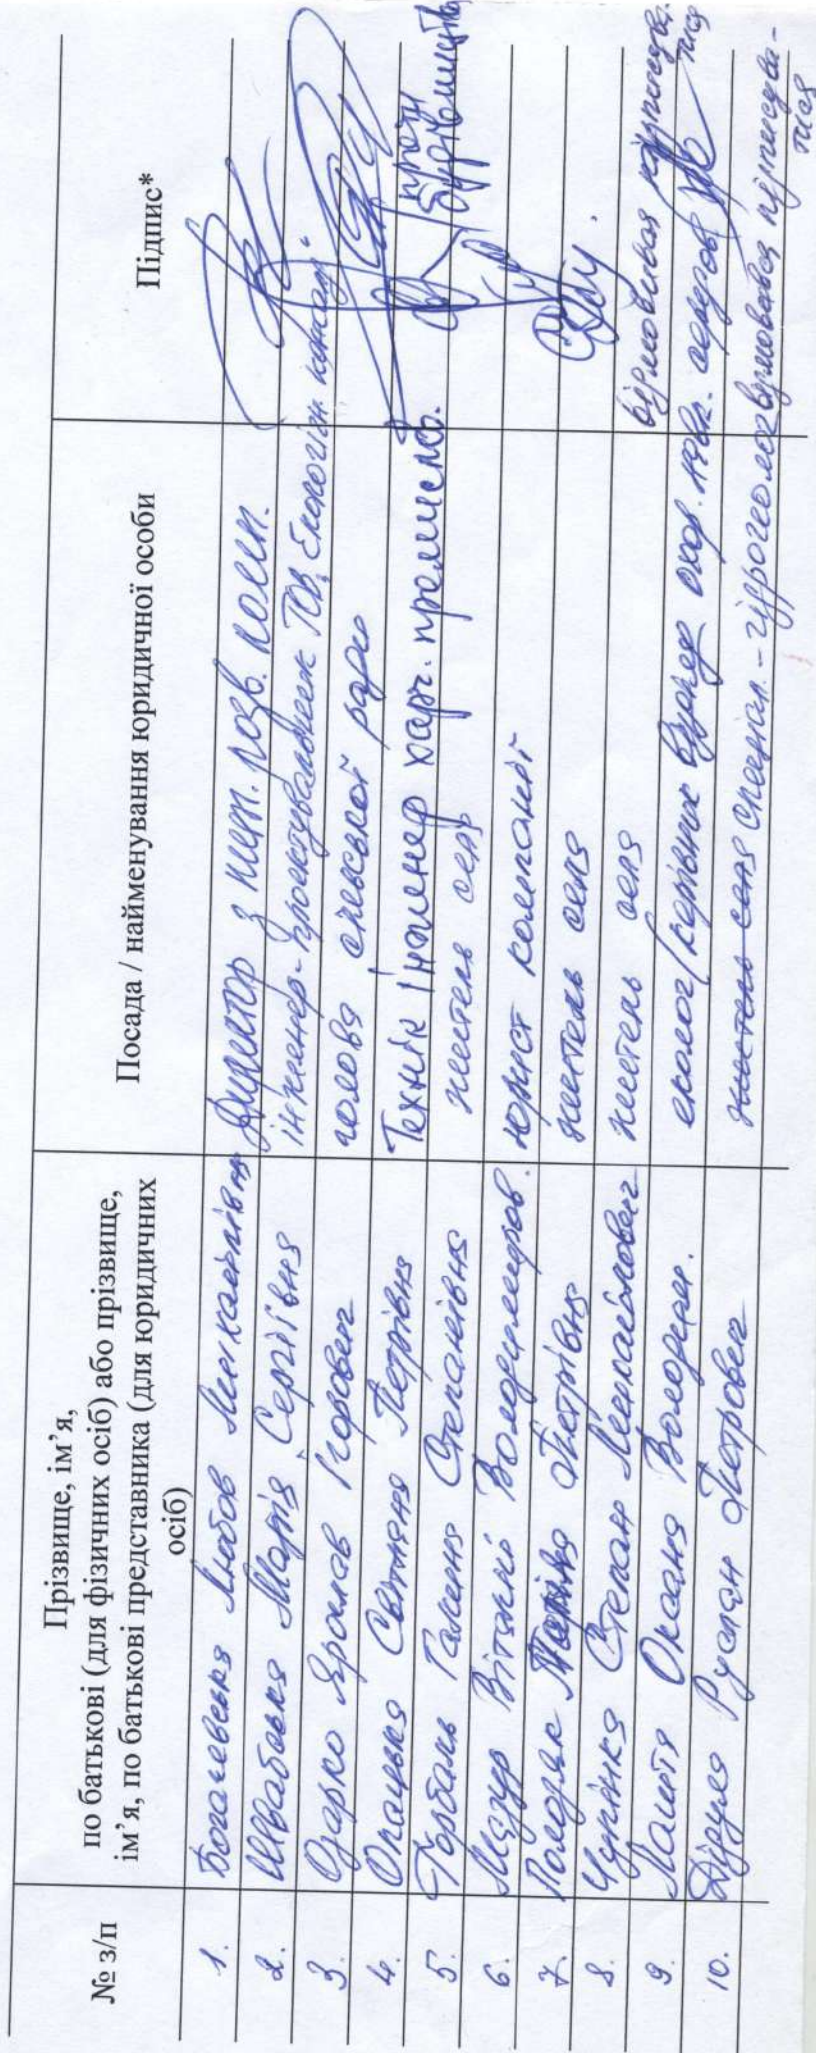 № з/п
Прізвище, ім’я,
по батькові (для фізичних осіб) або прізвище,
ім’я, по батькові представника (для юридичних
осіб)
Посада / найменування юридичної особи
Підпис*
1. Богачевська Любов Михайлівна Директор з пит. розв. комп.
2. Швабська Марія Сергіївна інженер-проектувальник ТОВ „Екологічн. консалт."
3. Озарко Ярослав Ігорович голова сільської ради
4. Опацька Світлана Петрівна Технік інженер харч. промислов. проти будівництва
5. Горбаль Галина Степанівна житель села
6. Мазур Віталій Володимиров. юрист компанії
7. Поледяк Марійка Петрівна житель села
8. Чупінка Степан Михайлович житель села відмовився підписува- тись
9. Лаштя Оксана Володим. еколог/керівник відділу охор. навк. серед
10. Дідула Руслан Петрович житель села спеціал.-гідрогеолог відмовився підписува-
тися